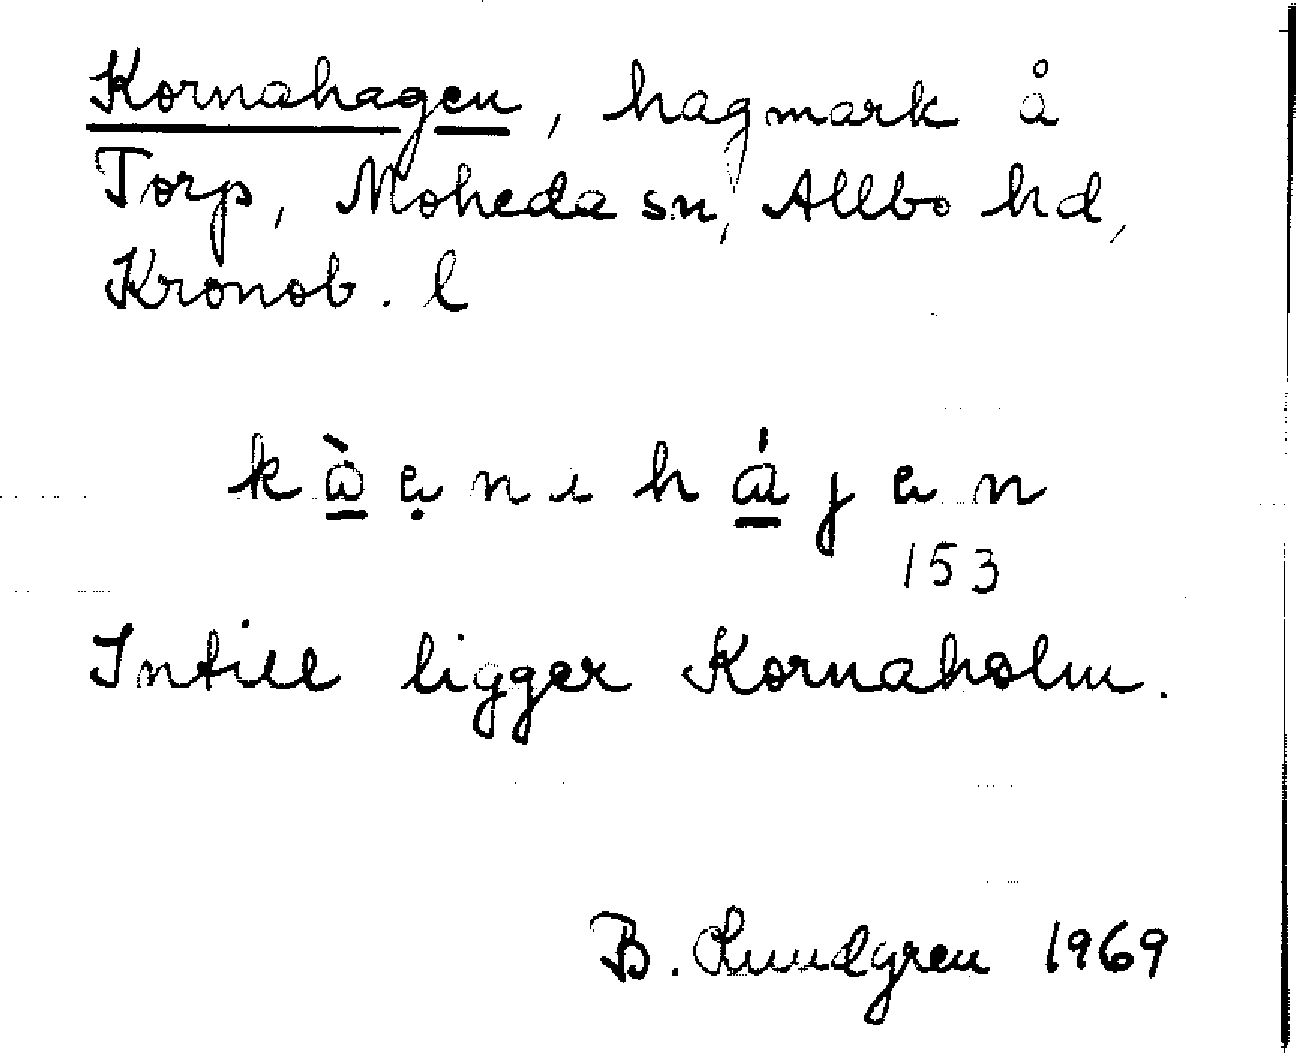 Kornahagen, hagmark å
Torp, Moheda sn, Allbo hd,
Kronob. l
kằ̱ạnıhá̱jən
153
Intill ligger Kornaholm.
B. Lundgren 1969